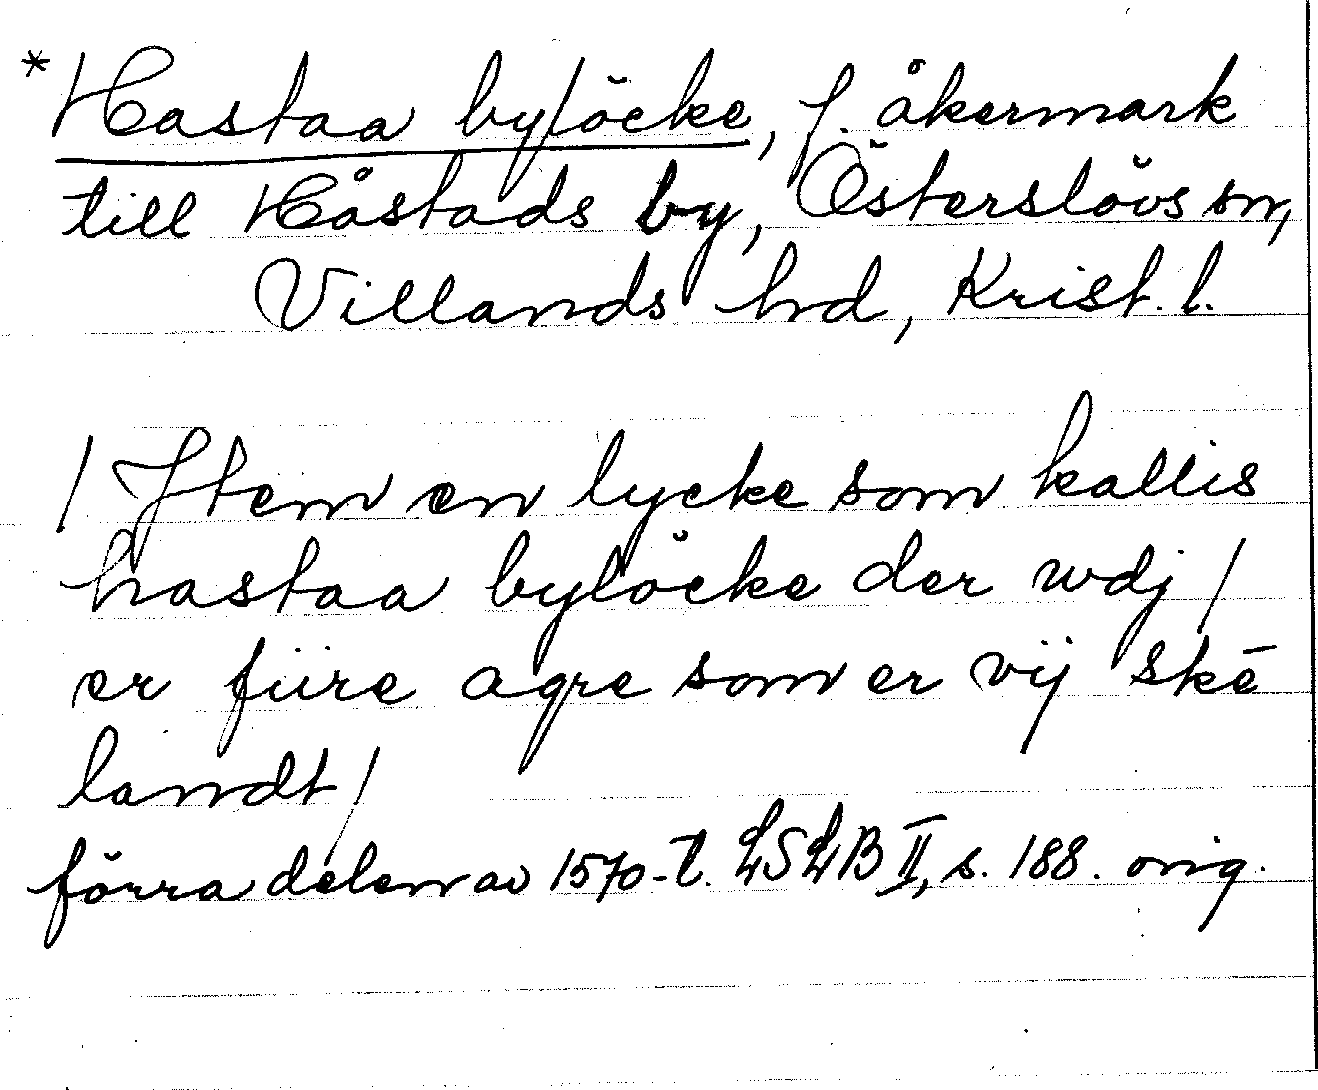 *Hastaa bylöcke, f. åkermark
till Håstads by, Österslövs sn,
Villands hd, Krist. l.
/ Jtem en lycke som kallis
hastaa bylöcke der wdj /
er fiire agre som er vij skē
landt /
förra delen av 1570-t. LSLB II, s. 188. orig.